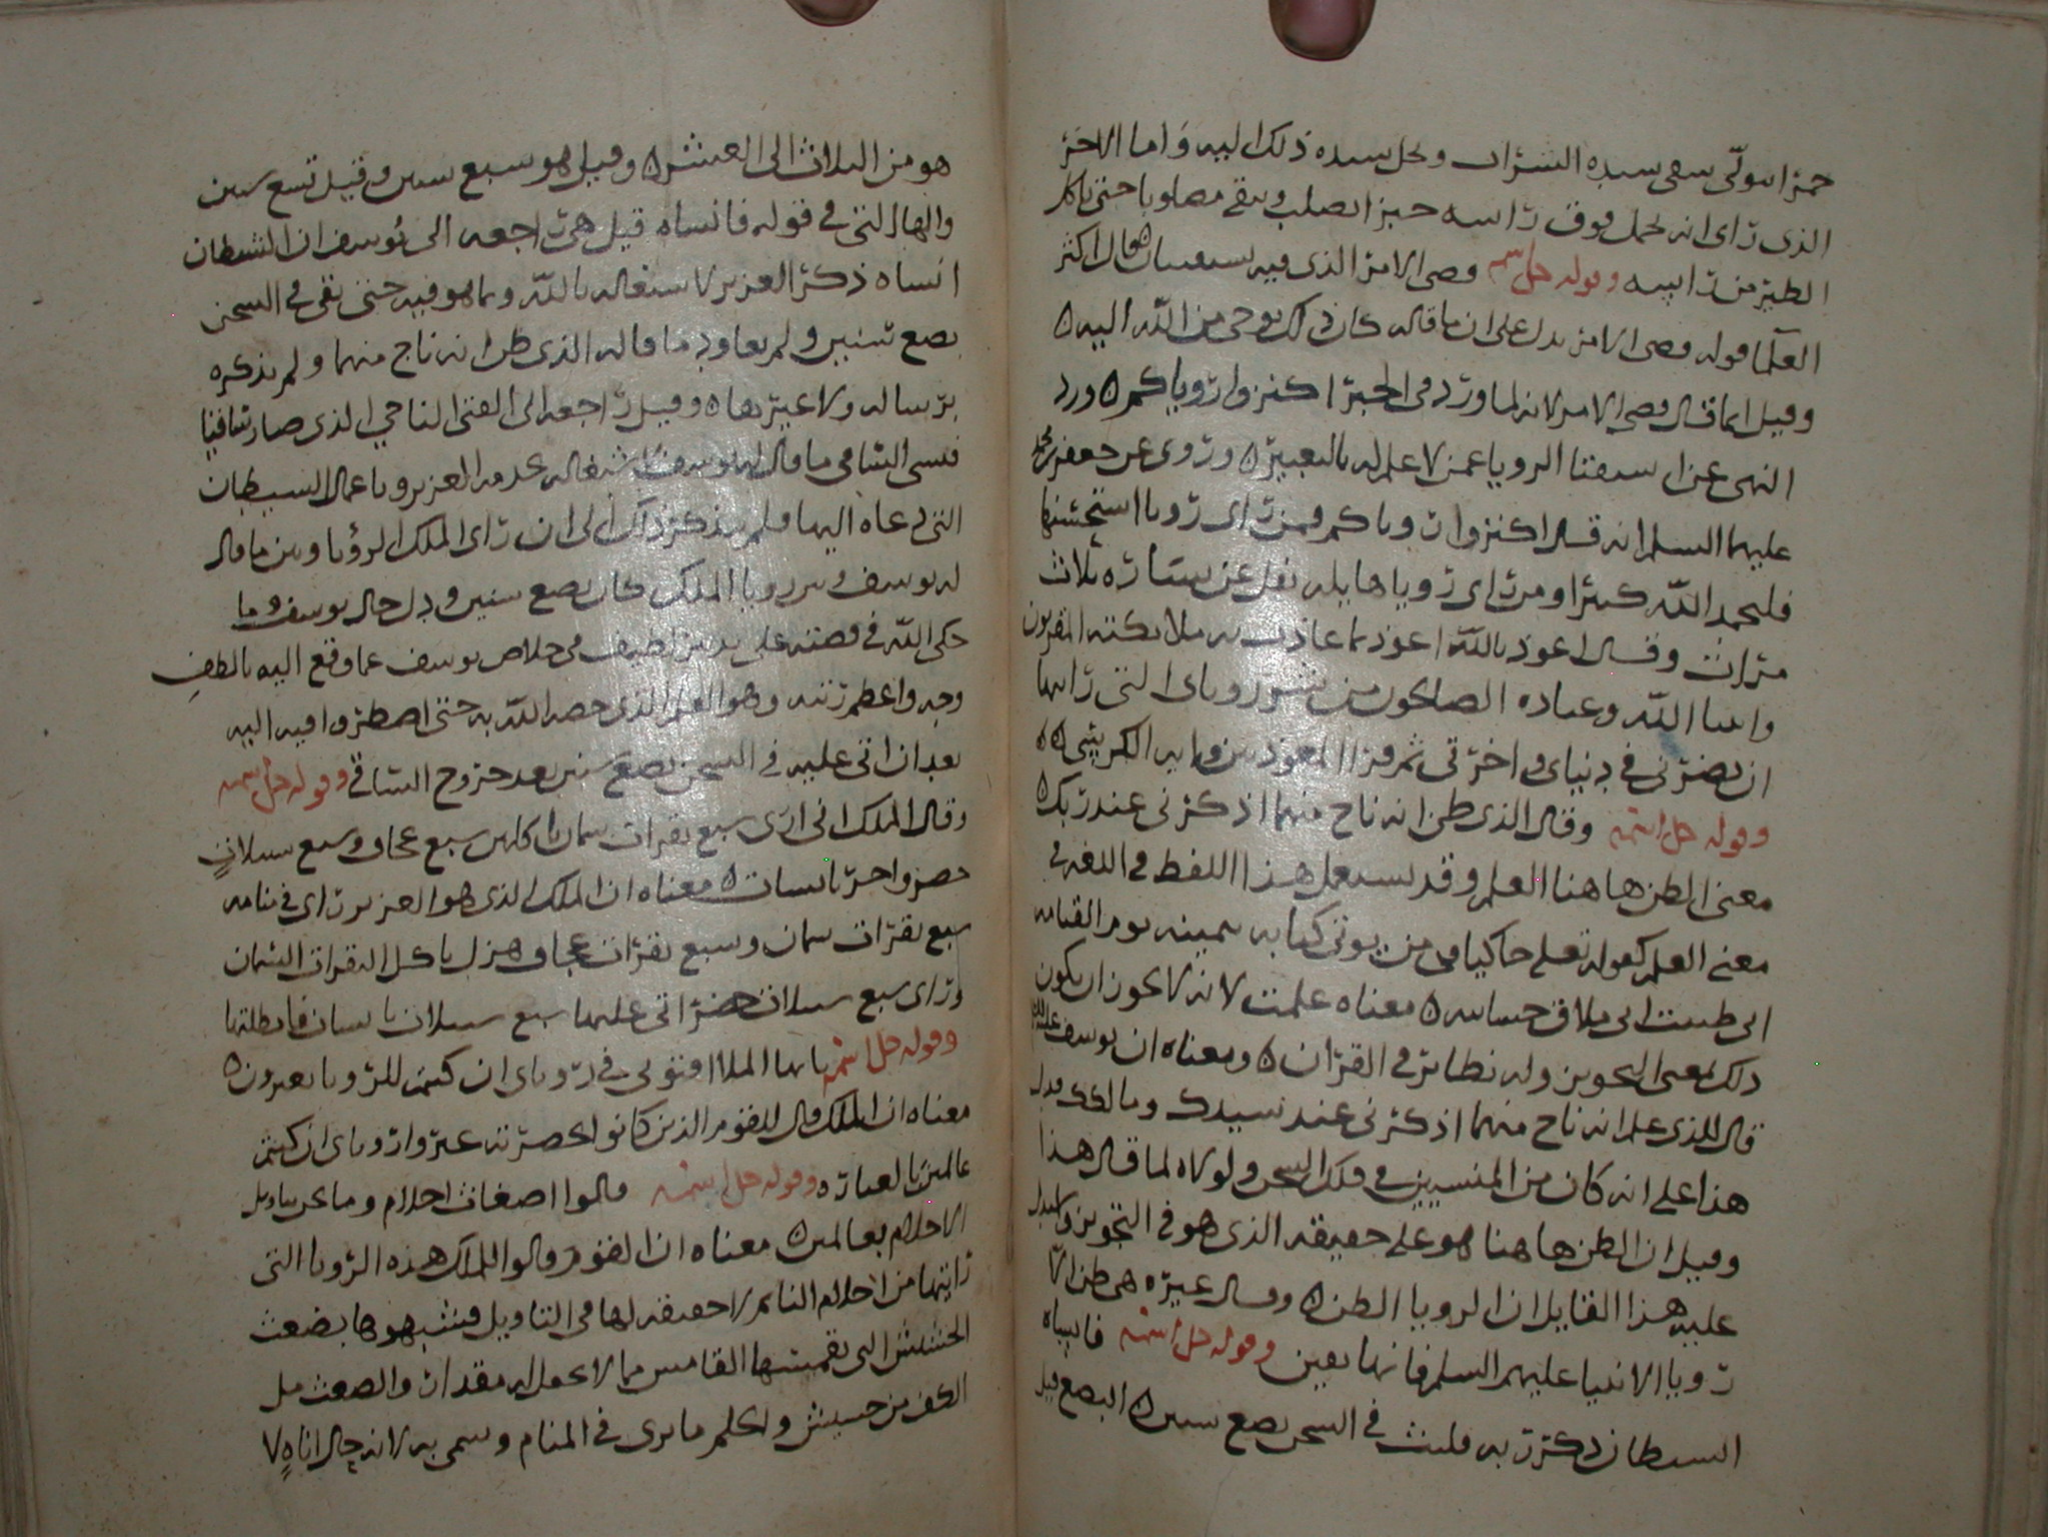 خمرا سولى سقى سيده الشراب وكل سيده ذلك اليه واما الاخر
الذى راى انه يحمل فوق راسه خبزا يصلب ويبقى مصلوبا حتى ياكل
الطير من راسه وقوله جل اسمه قضى الامر الذى فيه تستفتيان قال اكثر
العلما قوله قضى الامر يدل على ان ما قاله كان ذلك بوحى من الله اليه
وقيل انما قال قضى الامر لانه لما ورد فى الخبر اكنزوا روياكم ورد
النهى عن استفتا الرويا عمن لا علم له بالتعبير وروى عن جعفر بن محمد
عليهما السلم انه قال اكنزوا روياكم فمن راى رويا استحسنها
فليحمد الله كثيرا ومن راى رويا هايله تفل عن يساره ثلاث
مرات وقال اعوذ بالله اعوذ بما عاذت به ملائكته المقربون
وانبيا الله وعباده الصالحون من شر روياى التى رايتها
ان يضرنى فى دنياى واخرتى ثم قرا المعوذتين واية الكرسى
وقوله جل اسمه وقال الذى ظن انه ناج منهما اذكرنى عند ربك
معنى الظن هاهنا العلم وقد يستعمل هذا اللفظ فى اللغه فى
معنى العلم كقوله تعلى حاكيا من يوتى كتابه بيمينه يوم القيامه
انى ظننت انى ملاق حسابيه معناه علمت لانه لا يجوز ان يكون
ذلك بمعنى التجويز وله نظائر فى القران ومعناه ان يوسف عليه السلم
قال للذى علم انه ناج منهما اذكرنى عند سيدك ومالكك فدل
هذا على انه كان من المنسيين فى ذلك السجن ولولاه لما قال هذا
وقيل ان الظن هاهنا هو على حقيقه الذى هو فى التجويز
عليه هذا القايل ان الرويا الظن وقال غيره هى ظن الا
رويا الانبيا عليهم السلم فانها يقين وقوله جل اسمه فانساه
الشيطان ذكر ربه فلبث فى السجن بضع سنين البضع قيل
هو من الثلاث الى العشر وقيل هو سبع سنين وقيل تسع سنين
والها التى فى قوله فانساه قيل هى راجعه الى يوسف ان الشيطان
انساه ذكر العزيز لاشتغاله بالله وما هو فيه حتى بقى فى السجن
بضع سنين ولم يعاود ما قاله الذى ظن انه ناج منهما ولم يذكره
برساله ولا غيرها وقيل راجعه الى الفتى الناجى الذى صار ساقيا
فنسى الساقى ما قال له يوسف اشتغاله بخدمه العزيز وباعمال الشيطان
التى دعاه اليها فلم يذكر ذلك الى ان راى الملك الرؤيا وبين ما قال
له يوسف وبين رويا الملك كان بضع سنين ودل حال يوسف وما
حكى الله فى قصته على تدبير لطيف فى خلاص يوسف عما وقع اليه بالطف
وجه واعظم رتبه وهو العلم الذى خصه الله به حتى اضطروا فيه اليه
بعد ان اتى عليه فى السجن بضع سنين بعد خروج الساقى وقوله جل اسمه
وقال الملك انى ارى سبع بقرات سمان ياكلهن سبع عجاف وسبع سنبلات
خضر واخر يابسات معناه ان الملك الذى هو العزيز راى فى منامه
سبع بقرات سمان وسبع بقرات عجاف هزل ياكل البقرات السمان
وراى سبع سنبلات خضر اتى عليها سبع سنبلات يابسات فابطلتها
وقوله جل اسمه يا ايها الملا افتونى فى روياى ان كنتم للرويا تعبرون
معناه ان الملك قال للقوم الذين كانوا بحضرته عبروا روياى ان كنتم
عالمين بالعباره وقوله جل اسمه قالوا اضغاث احلام وما نحن بتاويل
الاحلام بعالمين معناه ان القوم قالوا للملك هذه الرويا التى
رايتها من احلام النائم لا حقيقه لها فى التاويل فشبهوها بضغث
الحشيش التى يقمسها القامس مما لا يجعل له مقدار والضغث مل
الكف من حشيش والحلم ما يرى فى المنام وسمى به لانه حال اناه